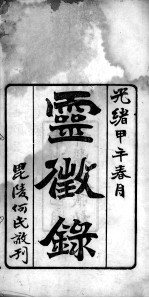 光緒甲午春月
靈徵錄
毘陵何氏敬刊